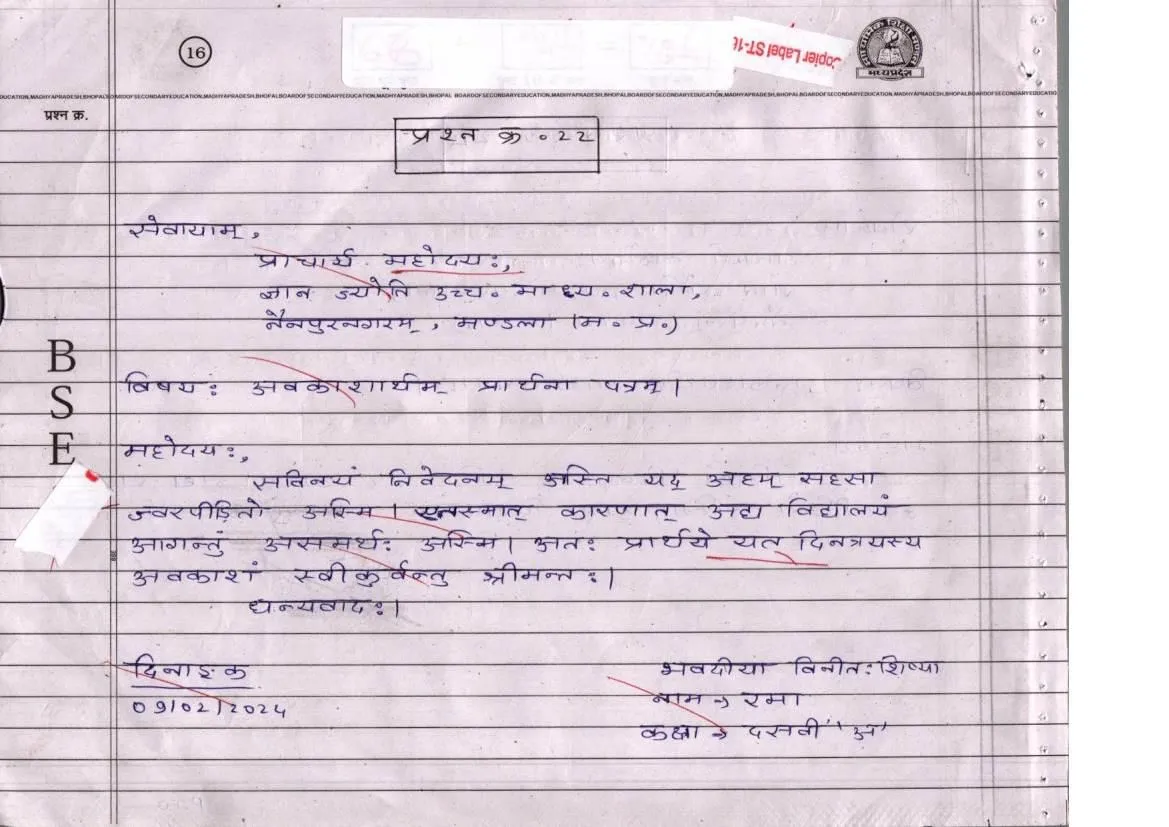 16
Copier Label ST-16
मध्यप्रदेश
प्रश्न क्र.
प्रश्न क्र ०२२
सेवायाम्,
प्राचार्य महोदयः,
ज्ञान ज्योति उच्च. माध्य. शाला,
नैनपुरनगरम्, मण्डला (म. प्र.)
विषयः अवकाशार्थम् प्रार्थना पत्रम्।
महोदयः,
सविनयं निवेदनम् अस्ति यद् अहम् सहसा
ज्वरपीड़ितो अस्मि। एतस्मात् कारणात् अद्य विद्यालयं
आगन्तुं असमर्थः अस्मि। अतः प्रार्थये यत दिनत्रयस्य
अवकाशं स्वीकुर्वन्तु श्रीमन्तः।
धन्यवादः।
दिनाङ्क
09/02/2024
भवदीया विनीतःशिष्या
नाम → रमा
कक्षा → दसवी "अ"
B
S
E